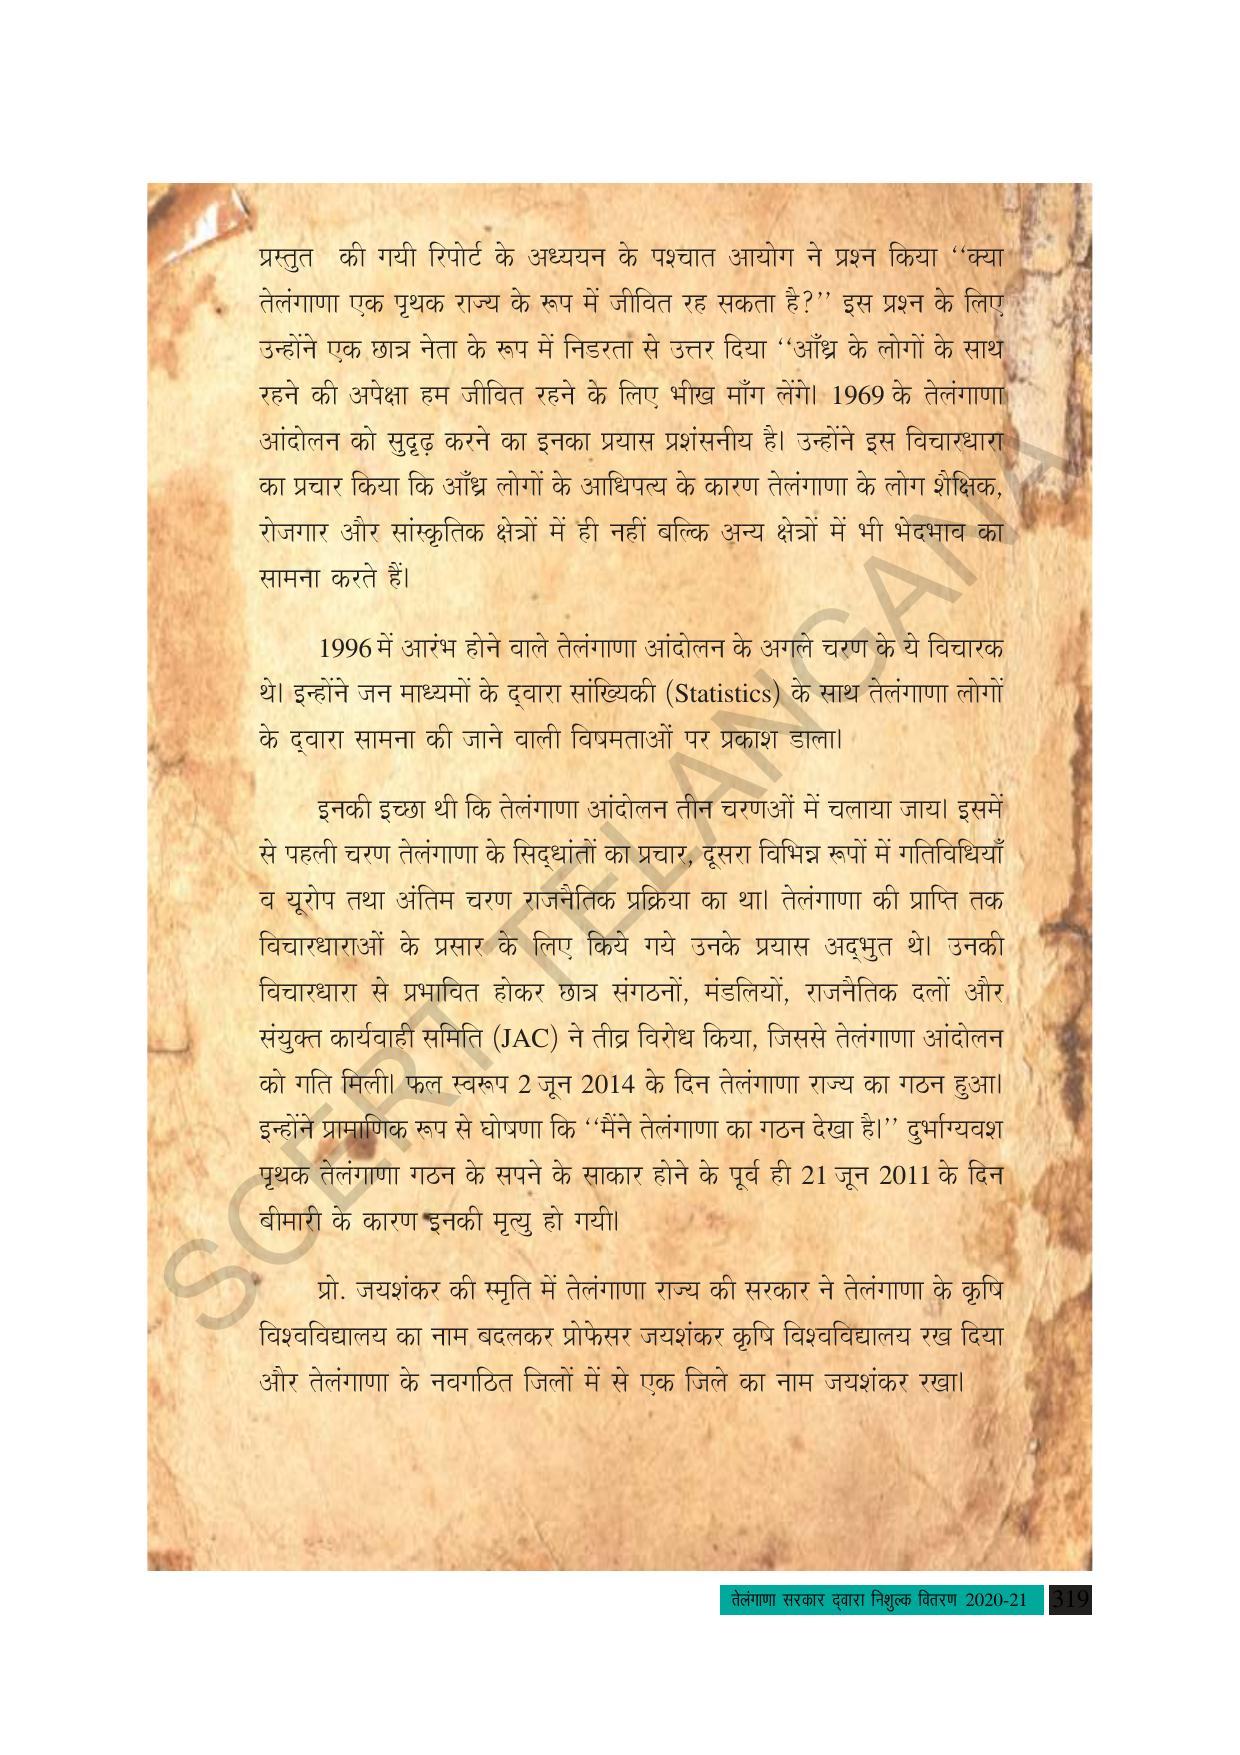 प्रस्तुत की गयी रिपोर्ट के अध्ययन के पश्चात आयोग ने प्रश्न किया ‘‘क्या
तेलंगाणा एक पृथक राज्य के रूप में जीवित रह सकता है?’’ इस प्रश्न के लिए
उन्होंने एक छात्र नेता के रूप में निडरता से उत्तर दिया ‘‘आँध्र के लोगों के साथ
रहने की अपेक्षा हम जीवित रहने के लिए भीख माँग लेंगे। 1969 के तेलंगाणा
आंदोलन को सुदृढ़ करने का इनका प्रयास प्रशंसनीय है। उन्होंने इस विचारधारा
का प्रचार किया कि आँध्र लोगों के आधिपत्य के कारण तेलंगाणा के लोग शैक्षिक,
रोजगार और सांस्कृतिक क्षेत्रों में ही नहीं बल्कि अन्य क्षेत्रों में भी भेदभाव का
सामना करते हैं।
1996 में आरंभ होने वाले तेलंगाणा आंदोलन के अगले चरण के ये विचारक
थे। इन्होंने जन माध्यमों के द्वारा सांख्यिकी (Statistics) के साथ तेलंगाणा लोगों
के द्वारा सामना की जाने वाली विषमताओं पर प्रकाश डाला।
इनकी इच्छा थी कि तेलंगाणा आंदोलन तीन चरणओं में चलाया जाय। इसमें
से पहली चरण तेलंगाणा के सिद्धांतों का प्रचार, दूसरा विभिन्न रूपों में गतिविधियाँ
व यूरोप तथा अंतिम चरण राजनैतिक प्रक्रिया का था। तेलंगाणा की प्राप्ति तक
विचारधाराओं के प्रसार के लिए किये गये उनके प्रयास अद्भुत थे। उनकी
विचारधारा से प्रभावित होकर छात्र संगठनों, मंडलियों, राजनैतिक दलों और
संयुक्त कार्यवाही समिति (JAC) ने तीव्र विरोध किया, जिससे तेलंगाणा आंदोलन
को गति मिली। फल स्वरूप 2 जून 2014 के दिन तेलंगाणा राज्य का गठन हुआ।
इन्होंने प्रामाणिक रूप से घोषणा कि ‘‘मैंने तेलंगाणा का गठन देखा है।’’ दुर्भाग्यवश
पृथक तेलंगाणा गठन के सपने के साकार होने के पूर्व ही 21 जून 2011 के दिन
बीमारी के कारण इनकी मृत्यु हो गयी।
प्रो. जयशंकर की स्मृति में तेलंगाणा राज्य की सरकार ने तेलंगाणा के कृषि
विश्वविद्यालय का नाम बदलकर प्रोफेसर जयशंकर कृषि विश्वविद्यालय रख दिया
और तेलंगाणा के नवगठित जिलों में से एक जिले का नाम जयशंकर रखा।
SCERT TELANGANA
तेलंगाणा सरकार द्वारा निशुल्क वितरण 2020-21 319